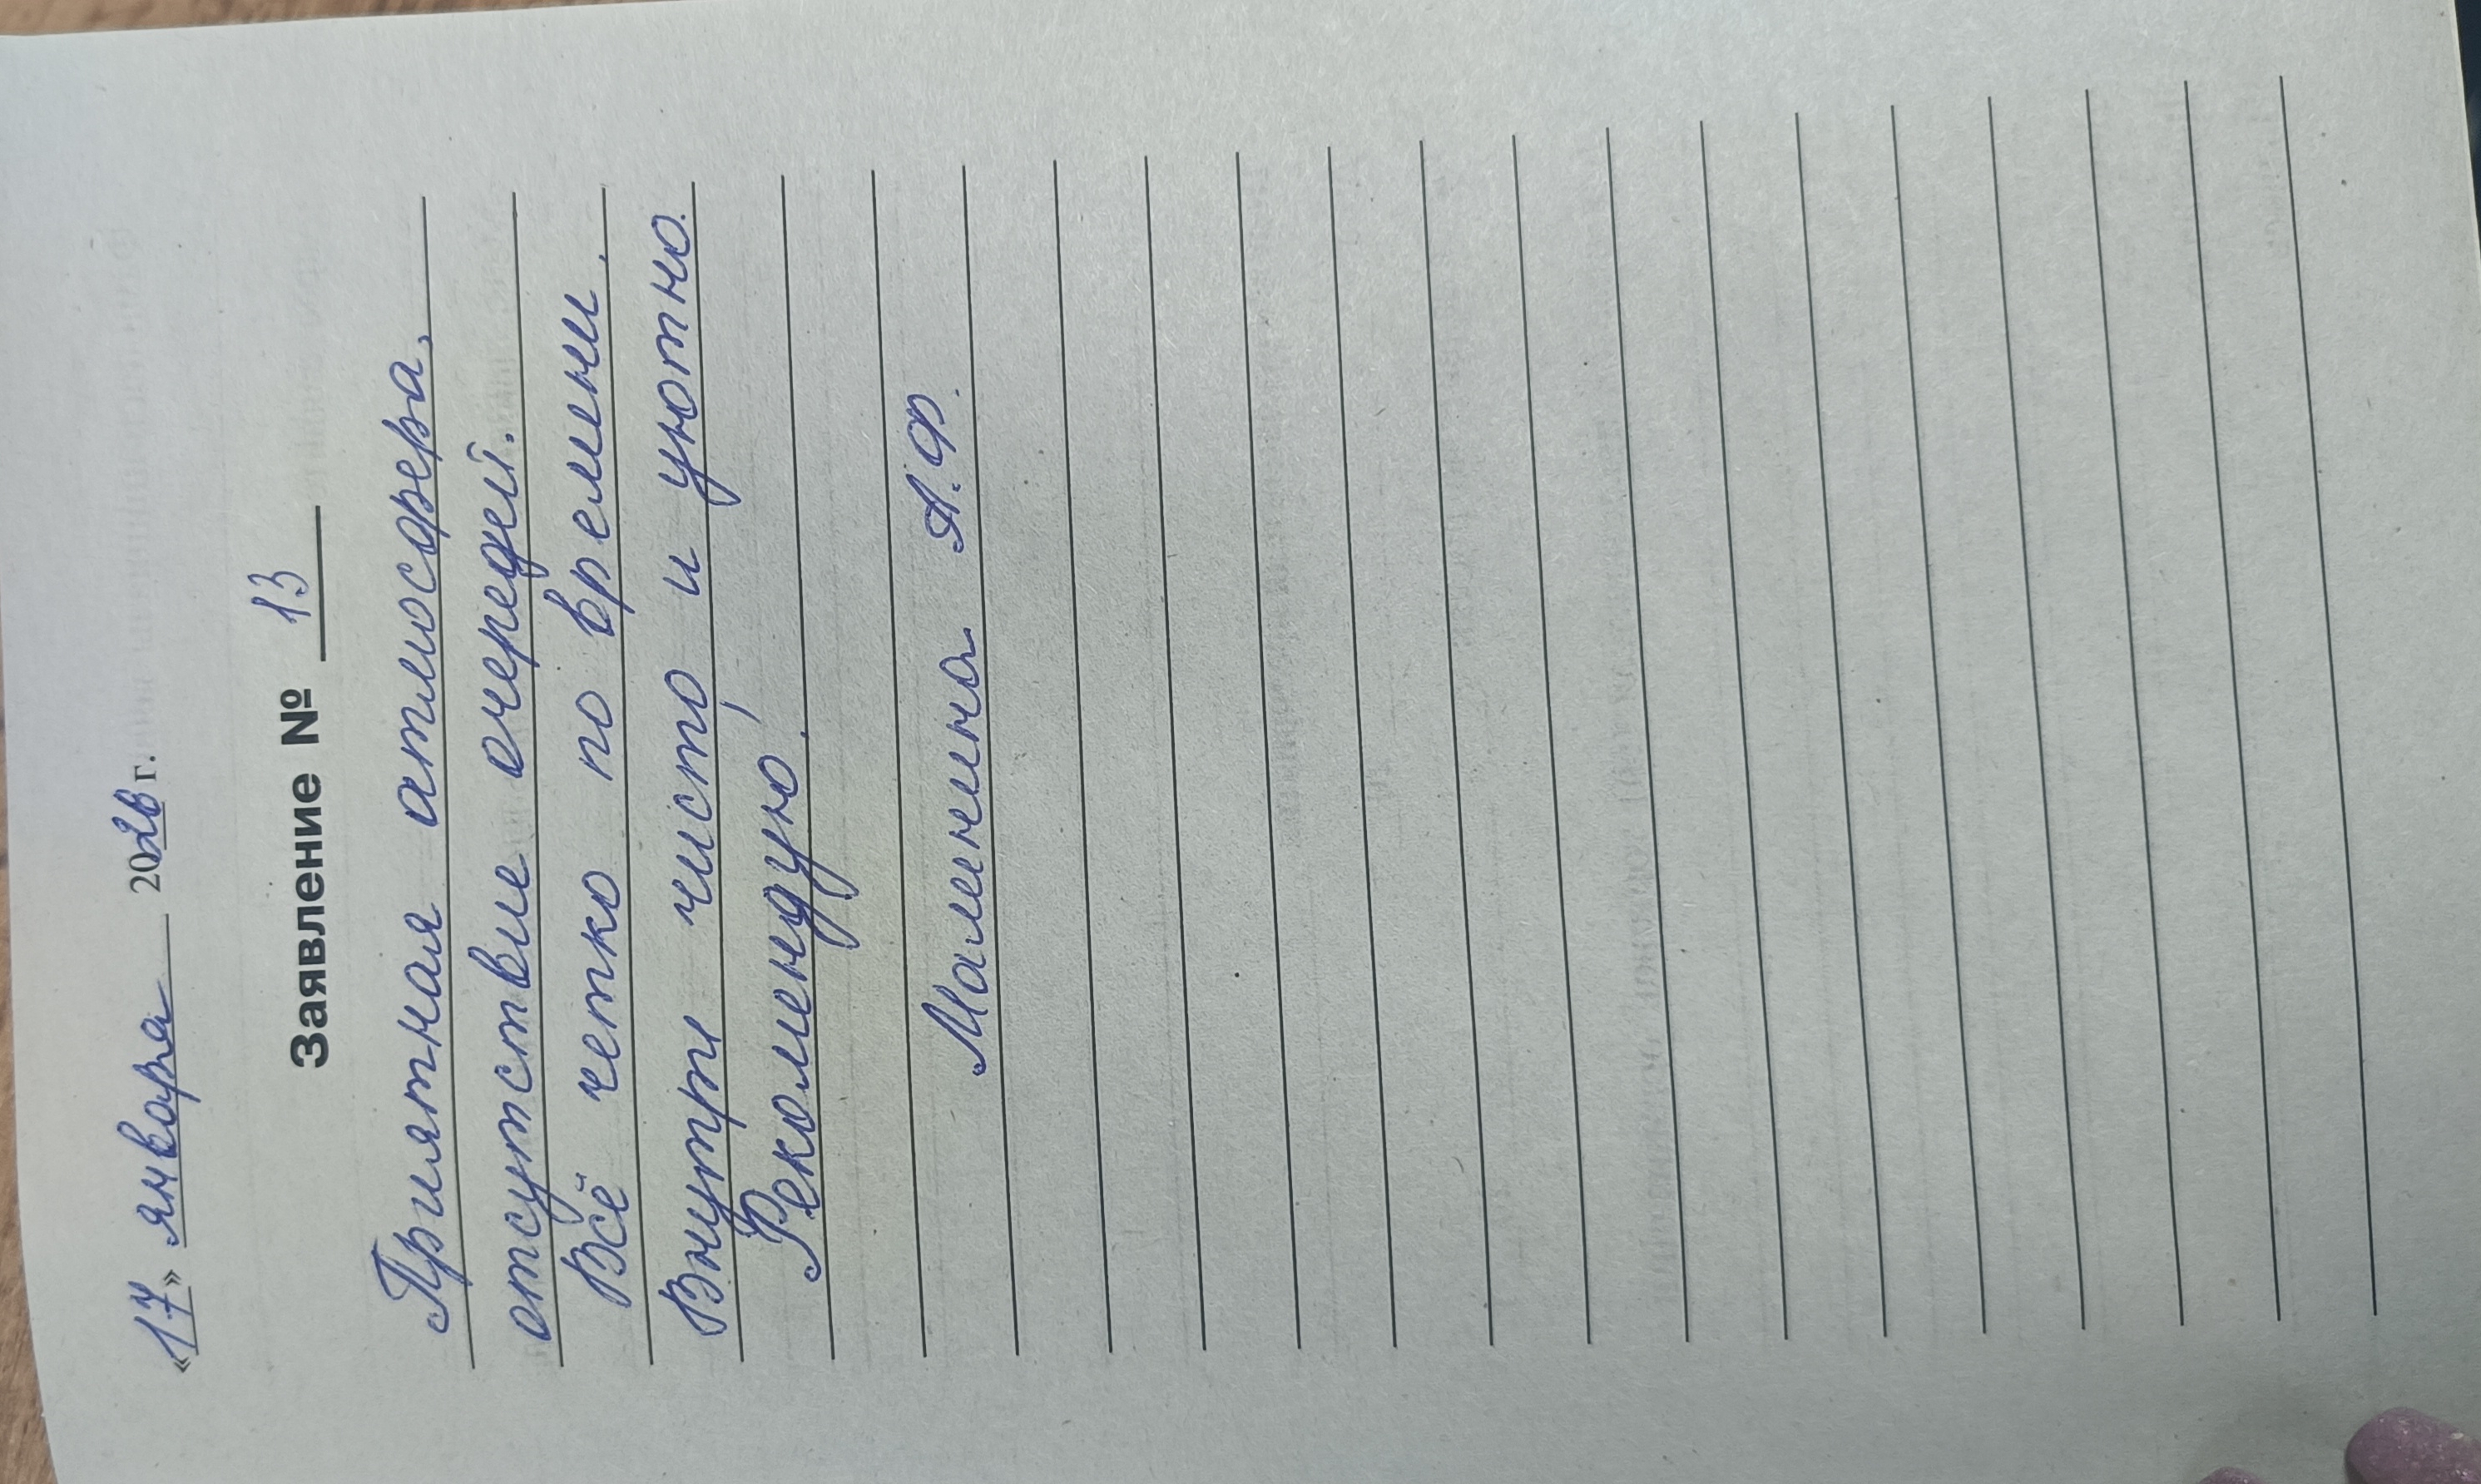 «17» января 2026 г.
Заявление № 13
Приятная атмосфера,
отсутствие очередей.
Всё четко по времени.
Внутри чисто, и уютно.
Рекомендую.
Маменина А.Ф.